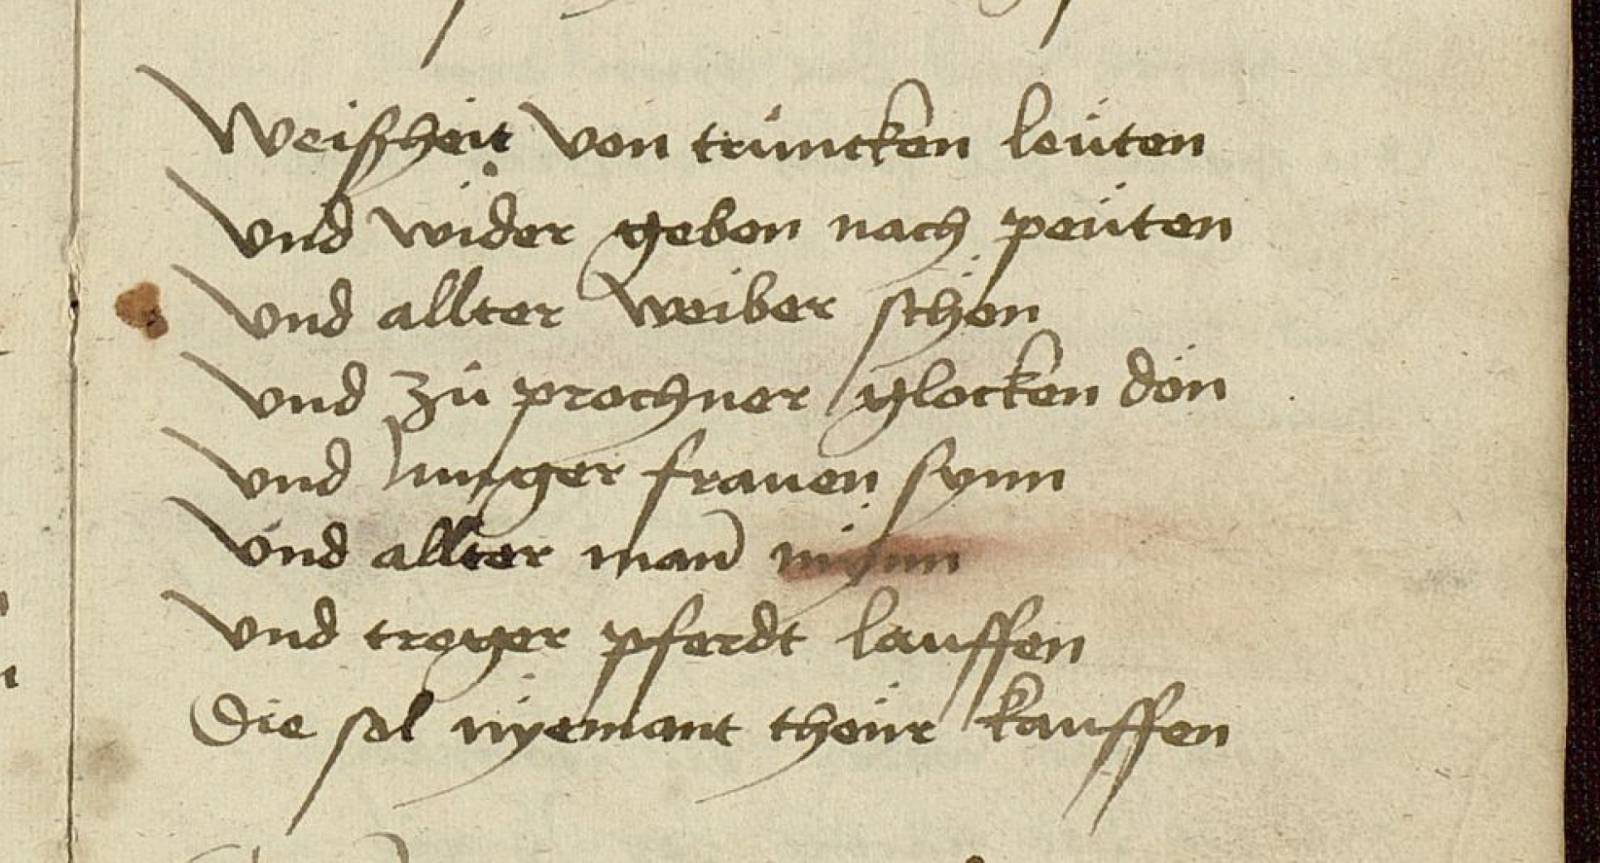 Weißheit von truncken leuten
vnd wider geben nach peuten
vnd allter weiber schön
vnd zu prochner glocken dön
vnd junger frauen synn
vnd allter man mynn
vnd treger pferdt lauffen
die sol nyemant theur kauffen